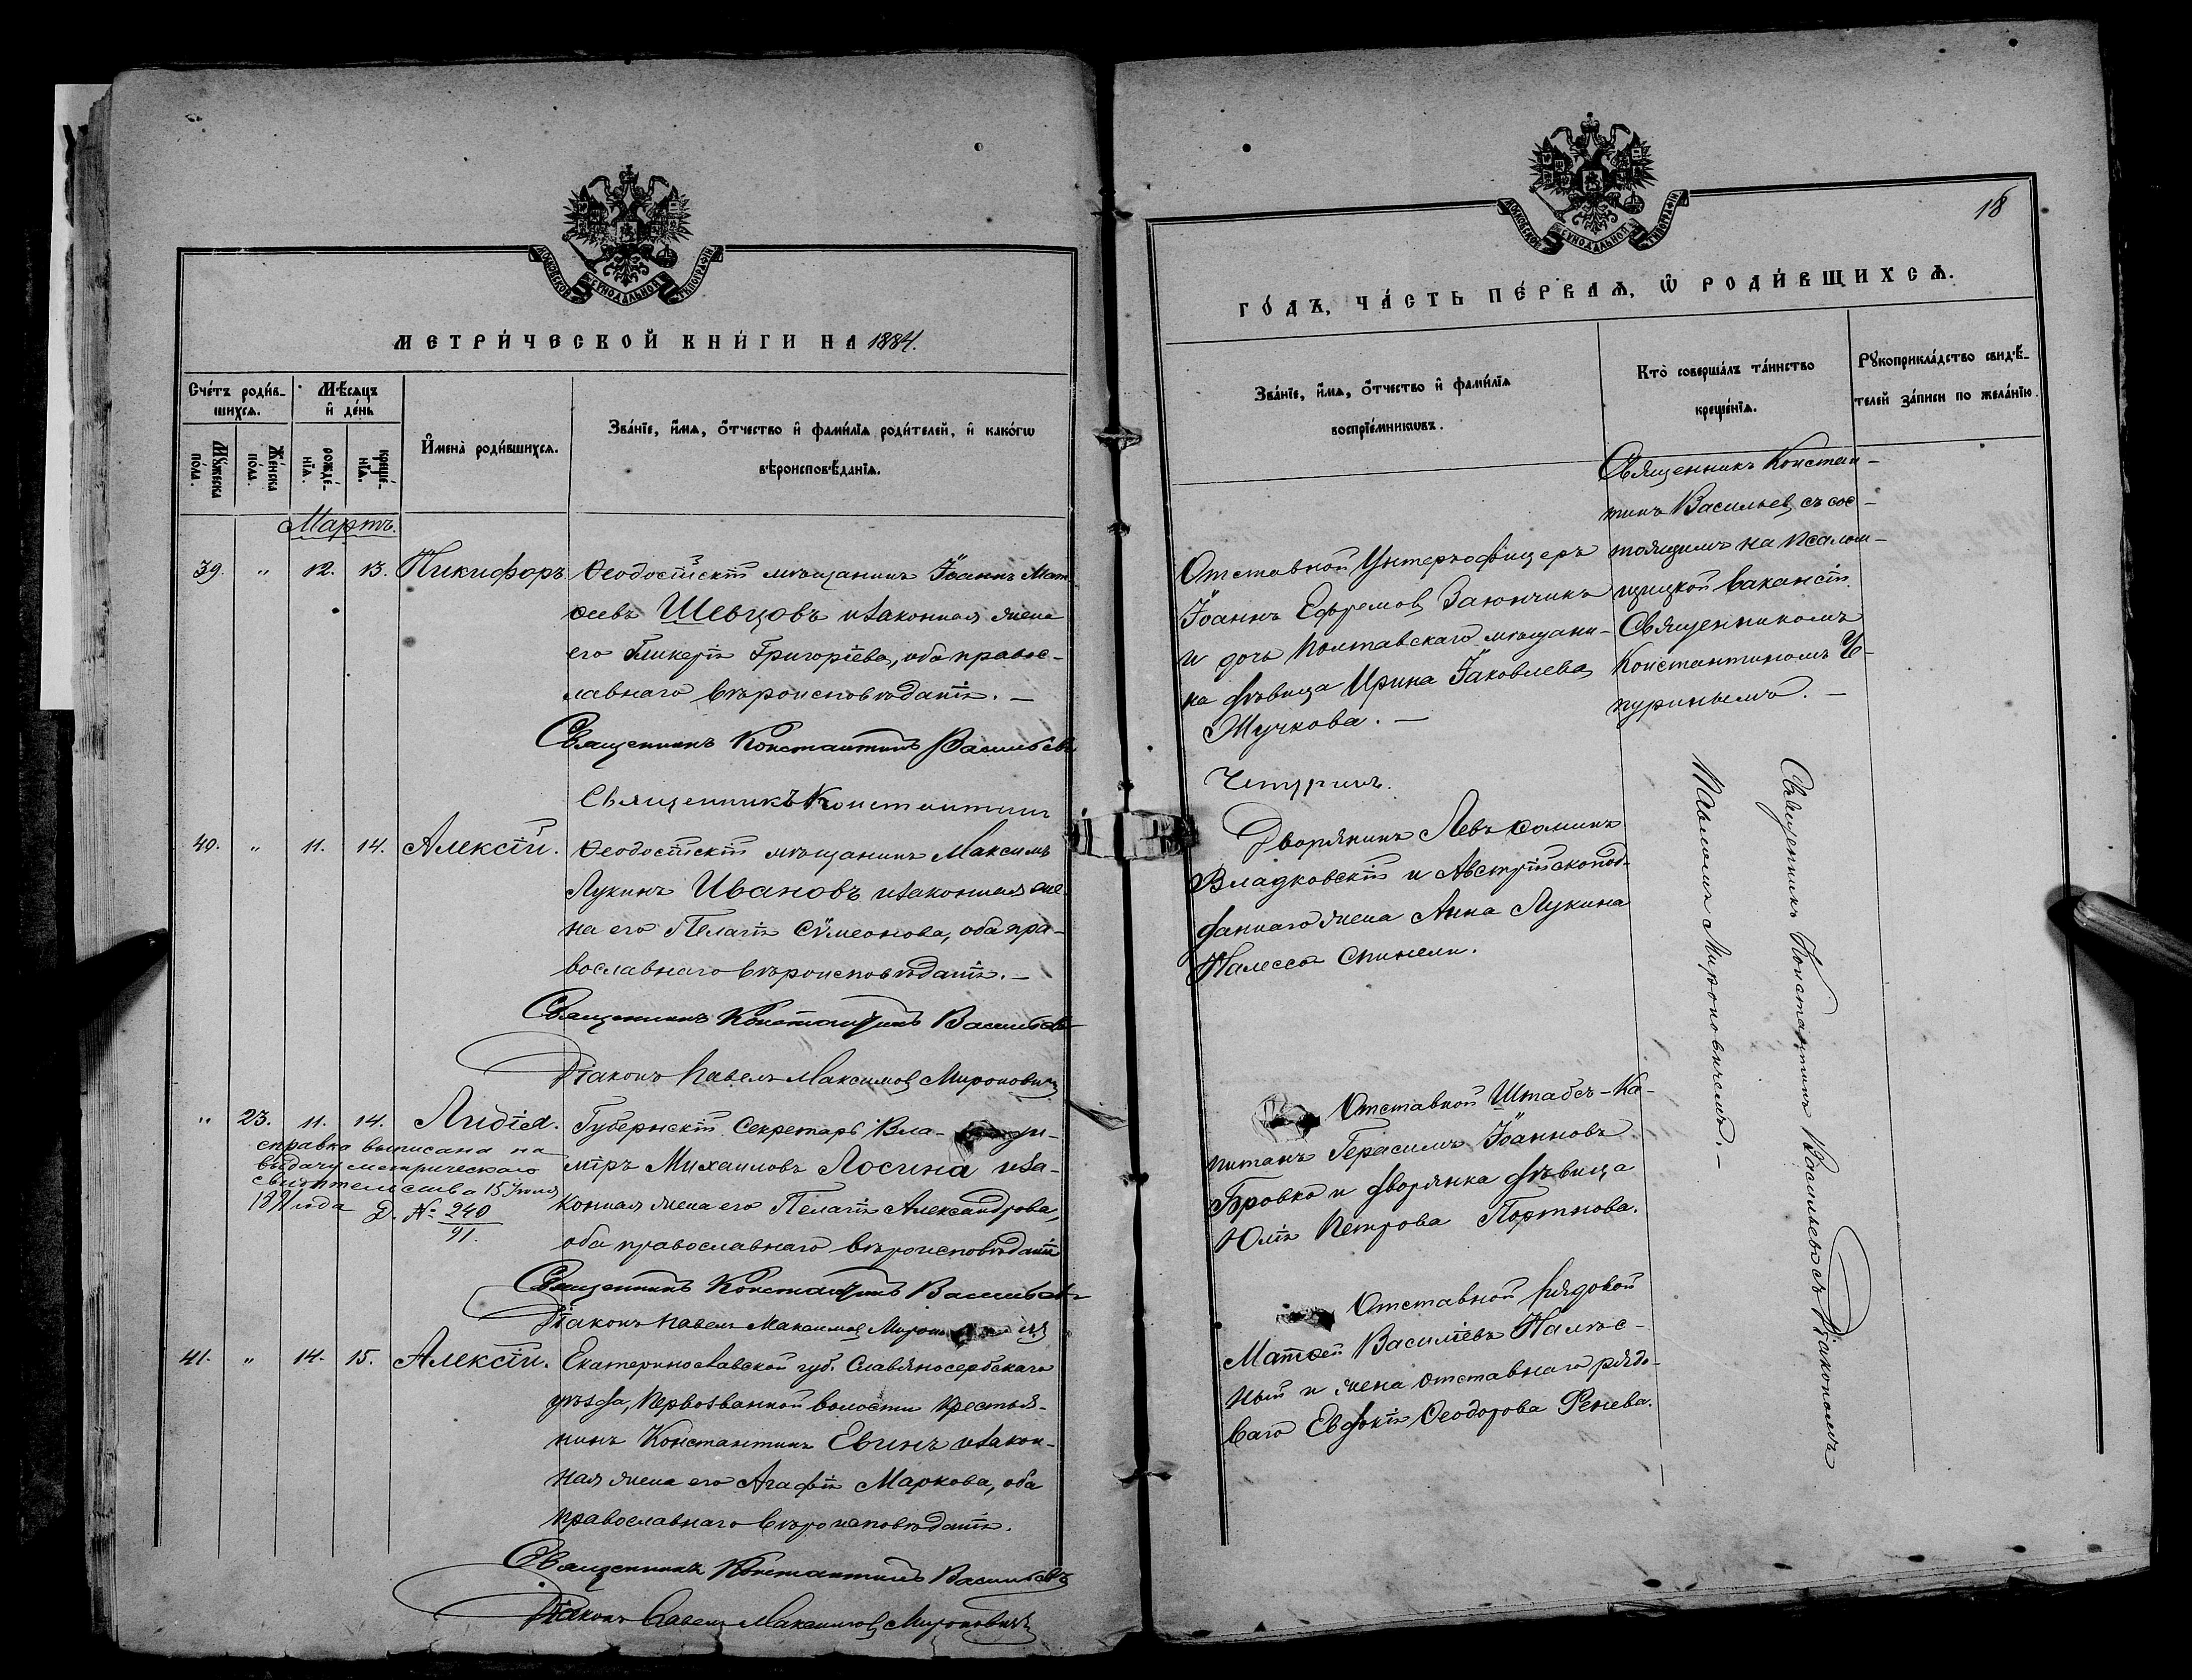 МОСКОВСКОЙ СѴНОДАЛЬНОЙ ТИПОГРАФІИ
МЕТРИ́ЧЕСКОЙ КНИ́ГИ НА 1884.
Сче́тъ роди́в-
шихсѧ.
Мѣ́сѧцъ
и҆ де́нь
Мꙋ́жеска
по́ла.
Же́нска
по́ла.
рожде́-
нїѧ.
креще́-
нїѧ.
И҆мена̀ роди́вшихсѧ.
Зва́нїе, и҆́мѧ, ѻ҆́тчество и҆ фами́лїѧ роди́телей, и҆ како́гѡ
вѣроисповѣ́данїѧ.
Мартъ.
39. " 12. 13. Никифоръ.
Ѳеодосійскій мѣщанинъ Іоаннъ Мат-
ѳеевъ Шевцовъ и законная жена
его Гликерія Григоріева, оба правос-
лавнаго вѣроисповѣданія. —
Священникъ Константинъ Васильевъ
Священникъ Константинъ
40. " 11. 14. Алексій.
Ѳеодосійскій мѣщанинъ Максимъ
Лукинъ Ивановъ и законная же-
на его Пелагія Сѵмеонова, оба пра-
вославнаго вѣроисповѣданія. —
Священникъ Константинъ Васильевъ
Діаконъ Павелъ Максимовъ Мироновичъ
" 23. 11. 14. Лидія.
справка выписана на
выдачу метрическаго
свидѣтельства 15 Іюня
1891 года Д. № 240
91.
Губернскій Секретарь Вла-
міръ Михаиловъ Лосина и за-
конная жена его Пелагія Александрова,
оба православнаго вѣроисповѣданія
Священникъ Константинъ Васильевъ
Діаконъ Павелъ Максимовъ
41. " 14. 15. Алексій.
Екатеринославской губ. Славяносербскаго
уѣзда, Первозванной волости крестья-
нинъ Константинъ Евинъ и закон-
ная жена его Агафія Маркова, оба
православнаго вѣроисповѣданія.
Священникъ Константинъ Васильевъ
Діаконъ Павелъ Максимовъ Мироновичъ
18
МОСКОВСКОЙ СѴНОДАЛЬНОЙ ТИПОГРАФІИ
ГО́ДЪ, ЧА́СТЬ ПЕ́РВАѦ, Ѡ҆ РОДИ́ВШИХСѦ.
Зва́нїе, и҆́мѧ, ѻ҆́тчество и҆ фами́лїѧ
воспрїе́мникѡвъ.
Кто̀ соверша́лъ та́инство
креще́нїѧ.
Рꙋкоприкла́дство свидѣ́-
телей за́писи по жела́нїю.
Отставной Унтеръ-офицеръ
Іоаннъ Ефремовъ Заюнчикъ
и дочь Полтавскаго мѣщани-
на дѣвица Ирина Іаковлева
Жучкова. —
Чепуринъ.
Священникъ Констан-
тинъ Васильевъ, съ сос-
тоящимъ на псалом-
щицкой вакансіи
Священникомъ
Константиномъ Че-
пуринымъ. —
Дворянинъ Левъ Ѳоминъ
Владковскій и Австрійскопод-
даннаго жена Анна Лукина
Палесса Спинели.
Отставной Штабсъ-Ка-
питанъ Герасимъ Іоанновъ
Бровко и дворянка дѣвица
Юлія Петрова Портнова.
Отставной рядовой
Матѳей Василіевъ Налѣс-
ный и жена отставнаго рядо-
ваго Евдокія Ѳеодорова Ренева.
Священникъ Константинъ Васильевъ съ Діакономъ
Павломъ Мироновичемъ. —